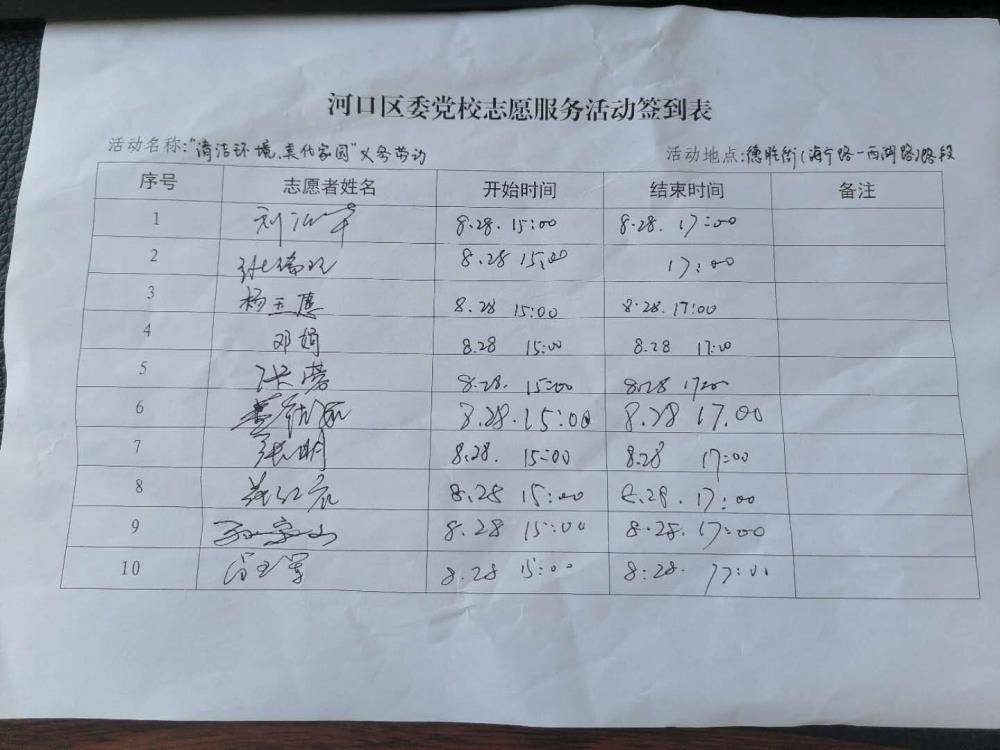 河口区委党校志愿服务活动签到表
活动名称:“清洁环境、美化家园”义务劳动 活动地点:德胜街(海宁路-西湖路)路段
序号 志愿者姓名 开始时间 结束时间 备注
1 8.28. 15:00 8.28. 17:00
2 8.28 15:00 17:00
3 杨玉慧 8.28 15:00 8.28. 17:00
4 邓娟 8.28 15:00 8.28 17:00
5 张蕾 8.28. 15:00 8.28 17:00
6 8.28. 15:00 8.28 17.00
7 张明 8.28. 15:00 8.28 17:00
8 8.28 15:00 8.28. 17:00
9 8.28 15:00 8.28. 17:00
10 8.28 15:00 8.28. 17:00